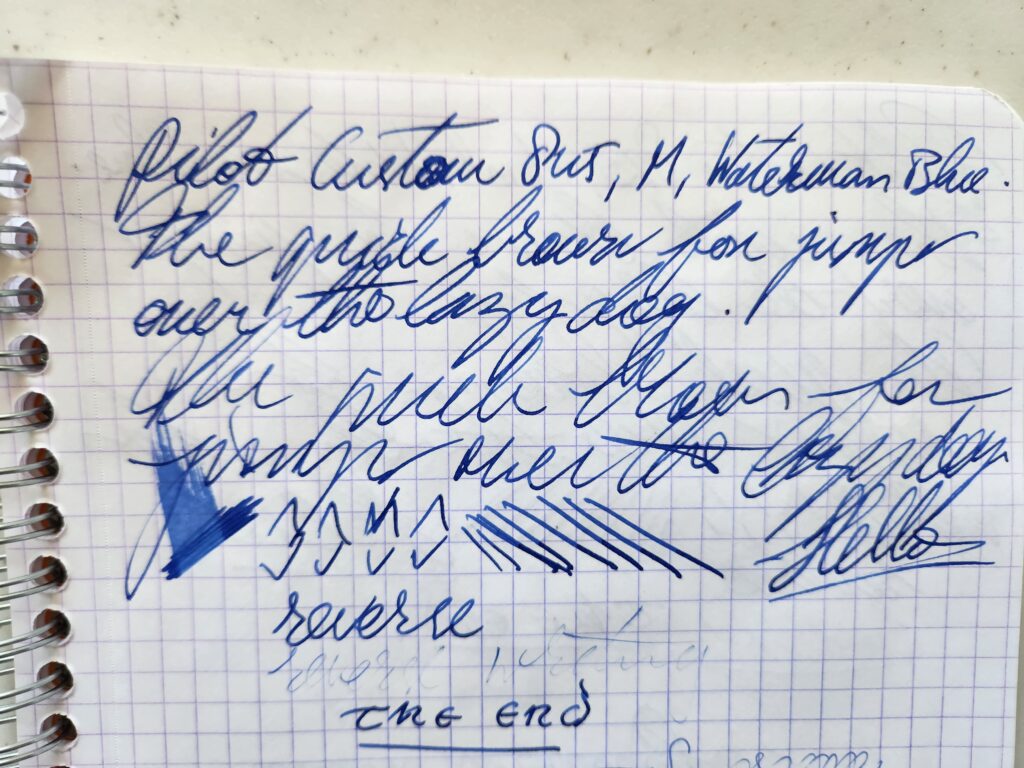 Pilot Custom 845, M, Waterman Blue.
The quick brown fox jumps
over the lazy dog.
The quick brown fox
jumps over the lazy dog
Hello
reverse
reverse writing
THE END